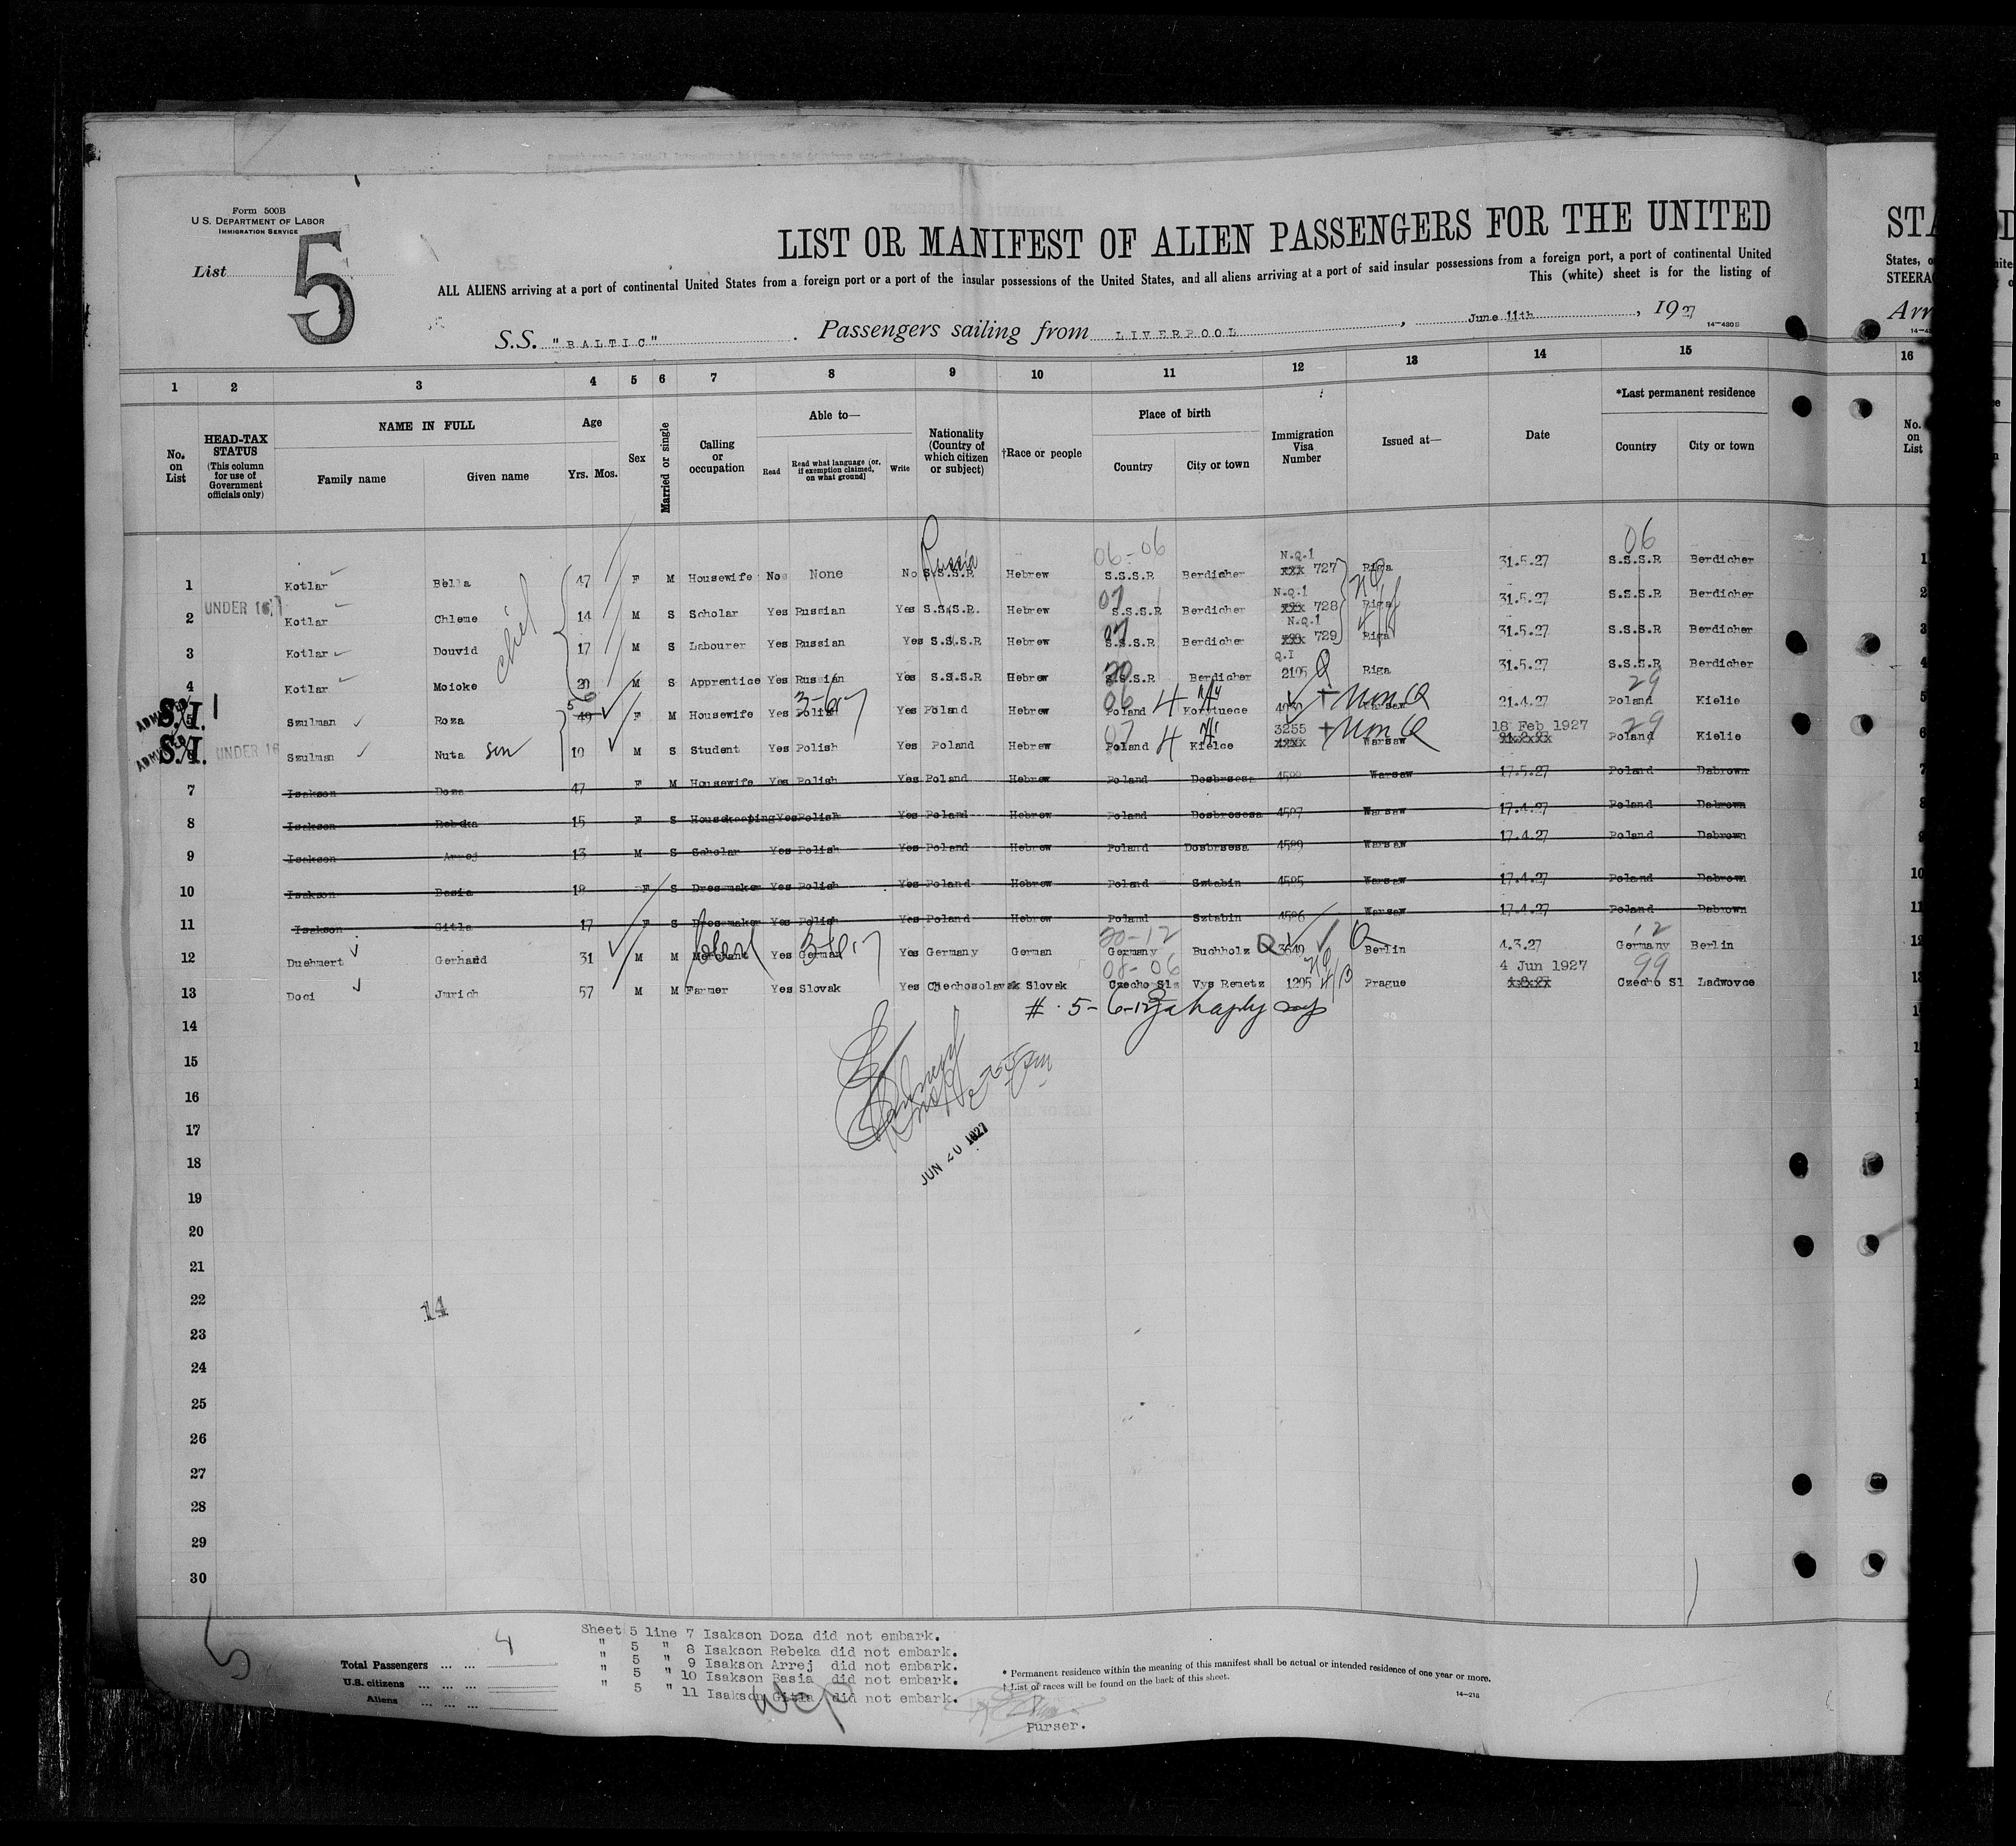 Form 500B
U.S. DEPARTMENT OF LABOR
IMMIGRATION SERVICE
List 5
LIST OR MANIFEST OF ALIEN PASSENGERS FOR THE UNITED
ALL ALIENS arriving at a port of continental United States from a foreign port or a port of the insular possessions of the United States, and all aliens arriving at a port of said insular possessions from a foreign port, a port of continental United
This (white) sheet is for the listing of
S.S. "BALTIC" . Passengers sailing from LIVERPOOL , June 11th , 1927
14-430B
STA
States, o
STEERA
Arr
1 2 3 4 5 6 7 8 9 10 11 12 13 14 15 16
No. on List
HEAD-TAX STATUS (This column for use of Government officials only)
NAME IN FULL
Family name Given name
Age
Yrs. Mos.
Sex
Married or single
Calling or occupation
Able to—
Read Read what language (or, if exemption claimed, on what ground) Write
Nationality (Country of which citizen or subject)
†Race or people
Place of birth
Country City or town
Immigration Visa Number
Issued at—
Date
*Last permanent residence
Country City or town
No. on List
Russia 06-06 N.Q.1 06
1 Kotlar Bella 47 F M Housewife No None No S.S.S.R Hebrew S.S.S.R Berdicher xxx 727 Riga 31.5.27 S.S.S.R Berdicher 1
UNDER 16 07 N.Q.1
2 Kotlar Chleme 14 M S Scholar Yes Russian Yes S.S.S.R. Hebrew S.S.S.R Berdicher 728 Riga 31.5.27 S.S.S.R Berdicher 2
07 N.Q.1
3 Kotlar Douvid 17 M S Labourer Yes Russian Yes S.S.S.R Hebrew S.S.S.R Berdicher 729 Riga 31.5.27 S.S.S.R Berdicher 3
20 Q.I
4 Kotlar Moioke 20 M S Apprentice Yes Russian Yes S.S.S.R Hebrew S.S.S.R Berdicher 2105 Q Riga 31.5.27 S.S.S.R Berdicher 4
ADMITTED S.I. 3-6 06 4 Non Q 29
5 Szulman Roza F M Housewife Yes Polish Yes Poland Hebrew Poland 21.4.27 Poland Kielie 5
ADMITTED S.I. UNDER 16 07 4 3255 + Non Q 18 Feb 1927 29
6 Szulman Nuta son 10 M S Student Yes Polish Yes Poland Hebrew Poland Kielce Warsaw Poland Kielie 6
7 Isakson Doza 47 F M Housewife Yes Polish Yes Poland Hebrew Poland Dosbrsesa Warsaw 17.5.27 Poland Dabrown 7
8 Isakson Rebeka 15 F S Housekeeping Yes Polish Yes Poland Hebrew Poland Dosbrsesa 4597 Warsaw 17.4.27 Poland Dabrown 8
9 Isakson Arrej 13 M S Scholar Yes Polish Yes Poland Hebrew Poland Dosbrsesa 4599 Warsaw 17.4.27 Poland Dabrown 9
10 Isakson Basia 18 F S Dressmaker Yes Polish Yes Poland Hebrew Poland Sztabin 4595 Warsaw 17.4.27 Poland Dabrown 10
11 Isakson Gitla 17 F S Dressmaker Yes Polish Yes Poland Hebrew Poland Sztabin 4596 Warsaw 17.4.27 Poland Dabrown 11
20-12 12
12 Duehmert Gerhard 31 M M Merchant Yes German Yes Germany German Germany Buchholz Q 3649 Q Berlin 4.3.27 Germany Berlin 12
08-06 4 Jun 1927 99
13 Doci Jmrich 57 M M Farmer Yes Slovak Yes Czechosolavak Slovak Czecho Sl Vys Remetz 1205 Prague Czecho Sl Ladwovce 13
# 5-6-
14
15
16
JUN 20 1927
17
18
19
20
21
22
14
23
24
25
26
27
28
29
30
Sheet 5 line 7 Isakson Doza did not embark.
" 5 " 8 Isakson Rebeka did not embark.
" 5 " 9 Isakson Arrej did not embark.
" 5 " 10 Isakson Basia did not embark.
" 5 " 11 Isakson Gitla did not embark.
Purser.
Total Passengers ... ... 4
U.S. citizens ... ... ...
Aliens ... ... ...
* Permanent residence within the meaning of this manifest shall be actual or intended residence of one year or more.
† List of races will be found on the back of this sheet.
14-218